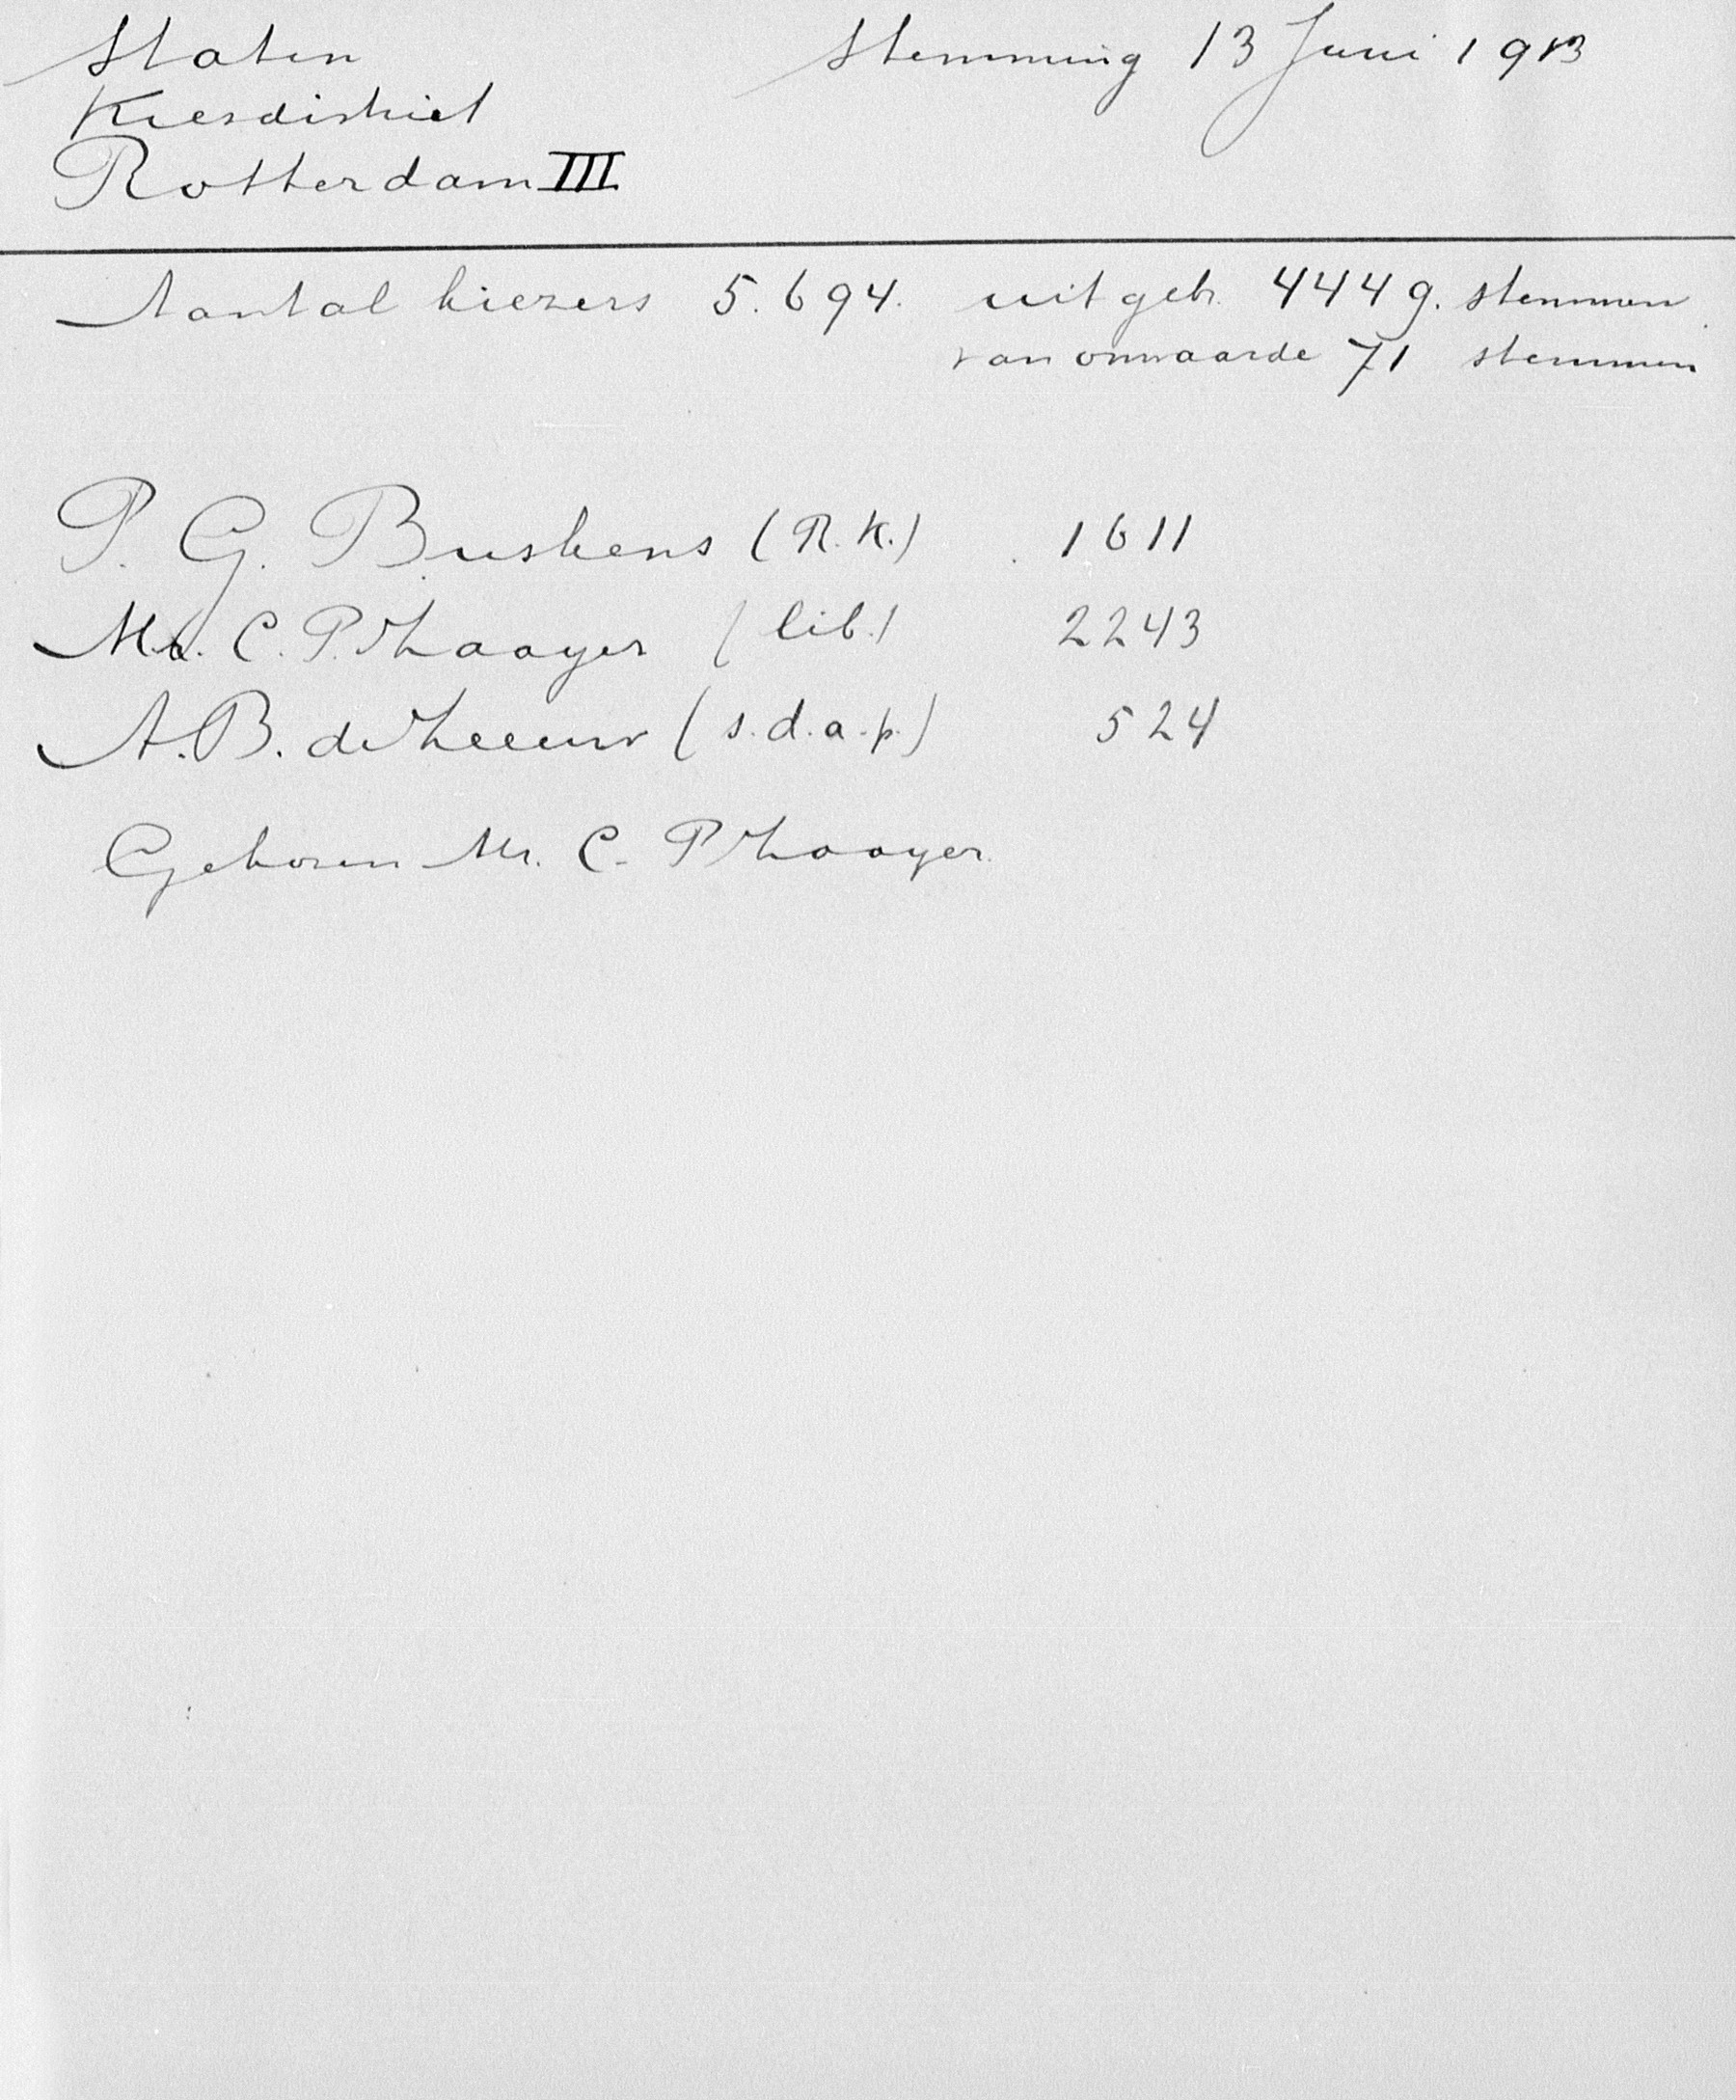 Staten Stemming 13 Juni 1913
Kiesdistrict
Rotterdam III
Aantal kiezers 5.694. uitgebr. 4449. stemmen
van onwaarde 71 stemmen
P. G. Buskens (R.K.) 1611
Mr. C. P. Zaayer (lib.) 2243
A. B. de Zeeuw (s.d.a.p.) 524
Gekozen Mr. C. P Zaayer